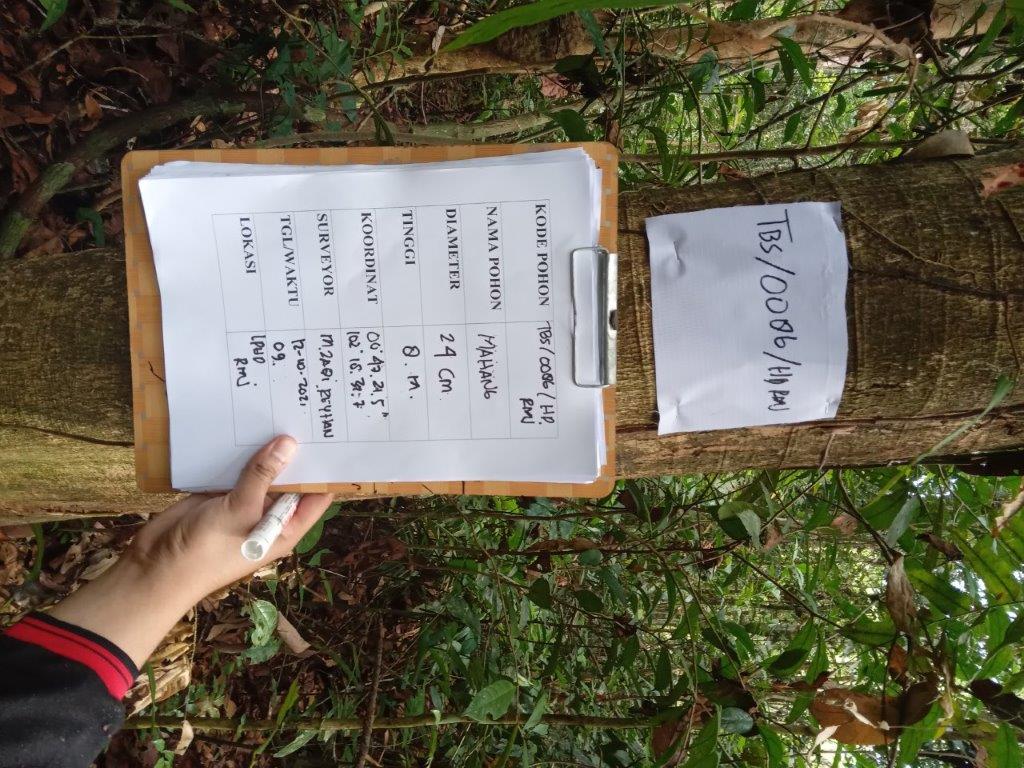 TBS/0086/HD RMJ
KODE POHON TBS/0086/HD.
RMJ
NAMA POHON MAHANG
DIAMETER 24 Cm.
TINGGI 8. M.
KOORDINAT 00° 47. 21. 5"
102°
SURVEYOR M. ZAQI REYHAN
TGL/WAKTU 12-10-2021
09.
LOKASI LPHD
RMJ